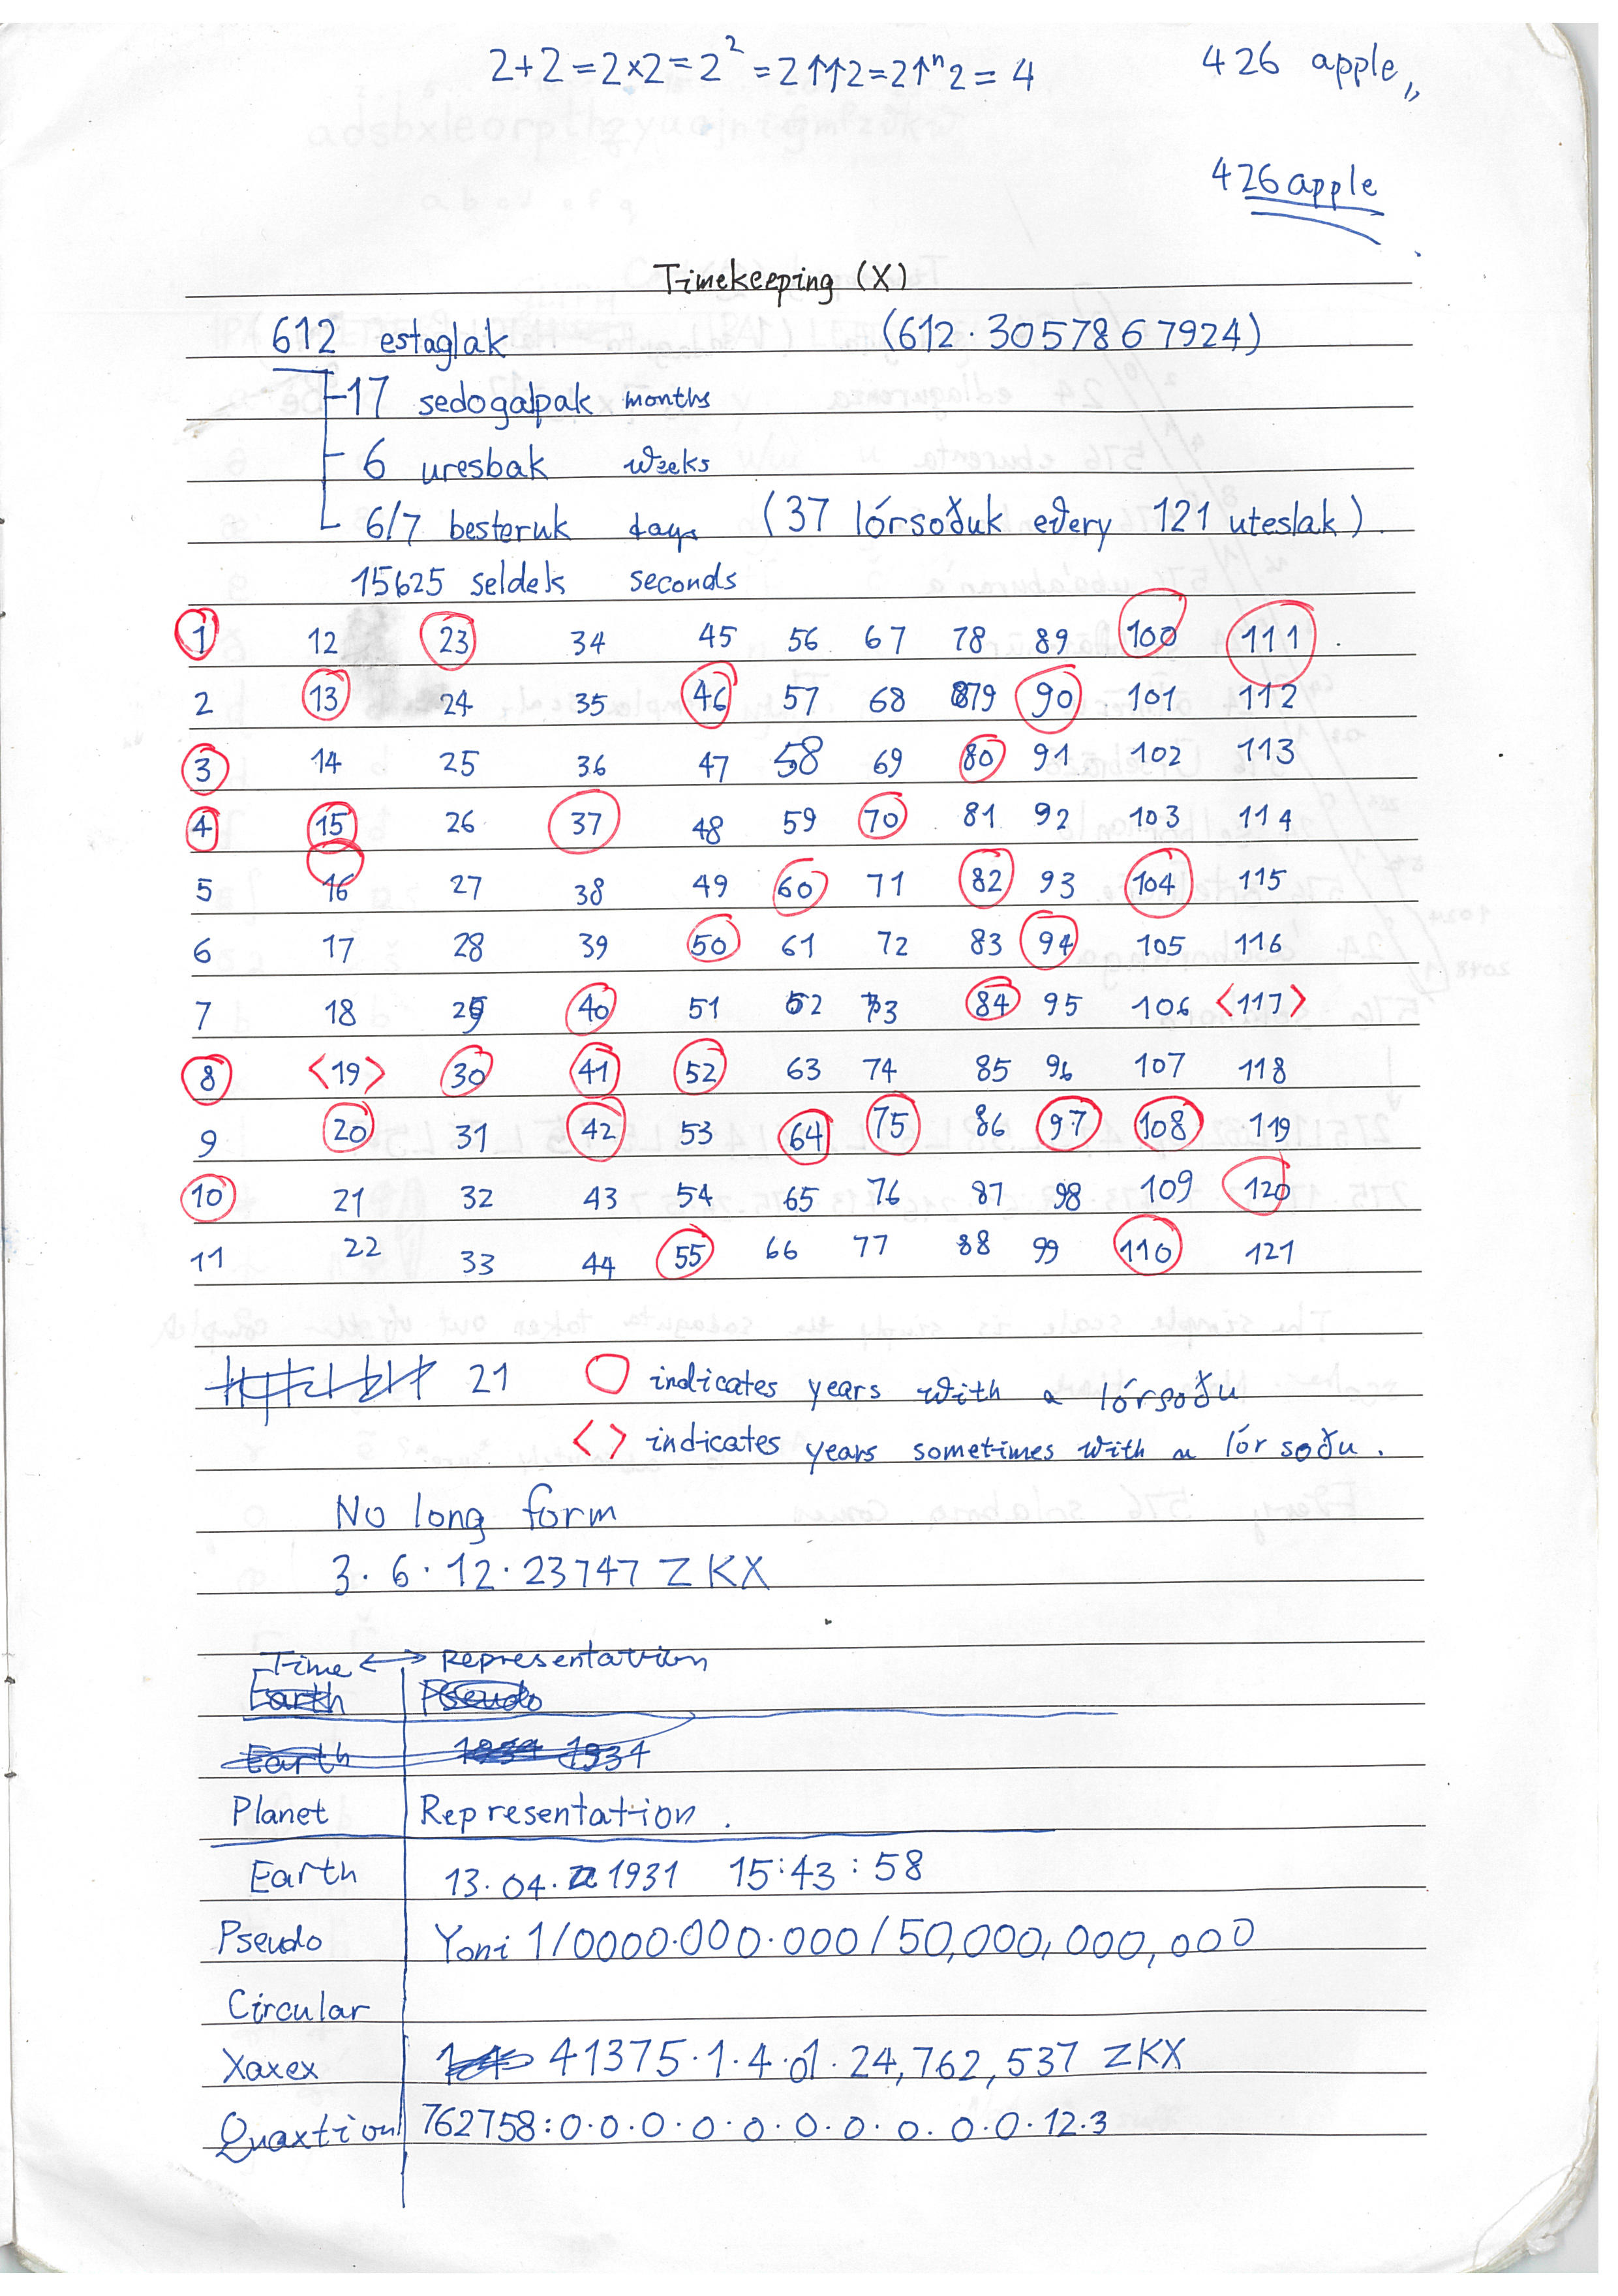 2+2=2×2=2²=2↑↑2=2↑ⁿ2=4 426 apple,,
426 apple
Timekeeping (X)
612 estaglak (612·3057867924)
17 sedogalpak months
6 uresbak weeks
6/7 besteruk days (37 lórsoðuk eðery 121 uteslak).
15625 seldek seconds
1 12 23 34 45 56 67 78 89 100 111
2 13 24 35 46 57 68 79 90 101 112
3 14 25 36 47 58 69 80 91 102 113
4 15 26 37 48 59 70 81 92 103 114
5 16 27 38 49 60 71 82 93 104 115
6 17 28 39 50 61 72 83 94 105 116
7 18 29 40 51 62 73 84 95 106 <117>
8 <19> 30 41 52 63 74 85 96 107 118
9 20 31 42 53 64 75 86 97 108 119
10 21 32 43 54 65 76 87 98 109 120
11 22 33 44 55 66 77 88 99 110 121
21 ○ indicates years with a lórsoðu
<> indicates years sometimes with a lórsoðu.
No long form
3·6·12·23747 ZKX
Time ↔ Representation
Earth Pseudo
Earth 1934
Planet Representation.
Earth 13·04·1931 15:43:58
Pseudo Yoni 1/0000·000·000/50,000,000,000
Circular
Xaxex 41375·1·4·01·24,762,537 ZKX
Quaxtionl 762758:0·0·0·0·0·0·0·0·0·0·12·3